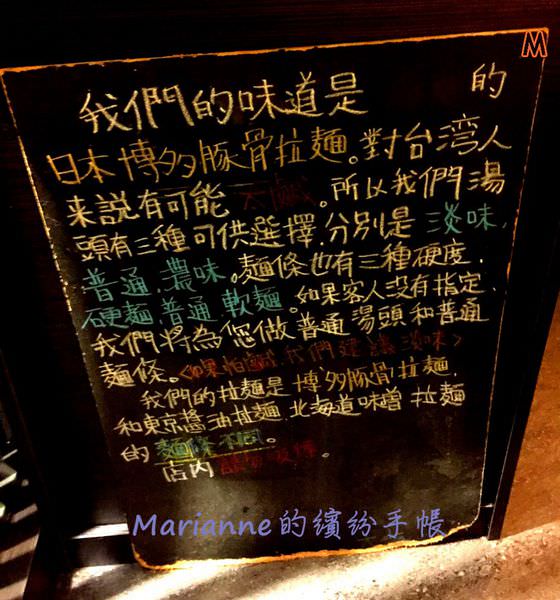 M
我們的味道是 的
日本博多豚骨拉麵。對台湾人
来說有可能太鹹。所以我們湯
頭有三種可供選擇,分別是淡味,
普通,濃味。麵條也有三種硬度,
硬麵,普通,軟麵。如果客人没有指定,
我們將為您做普通湯頭和普通
麵條。<如果怕鹹,我們建議淡味>
我們的拉麵是博多豚骨拉麵,
和東京醬油拉麵,北海道味噌拉麵
的麵條不同。
店内 。
Marianne的繽紛手帳